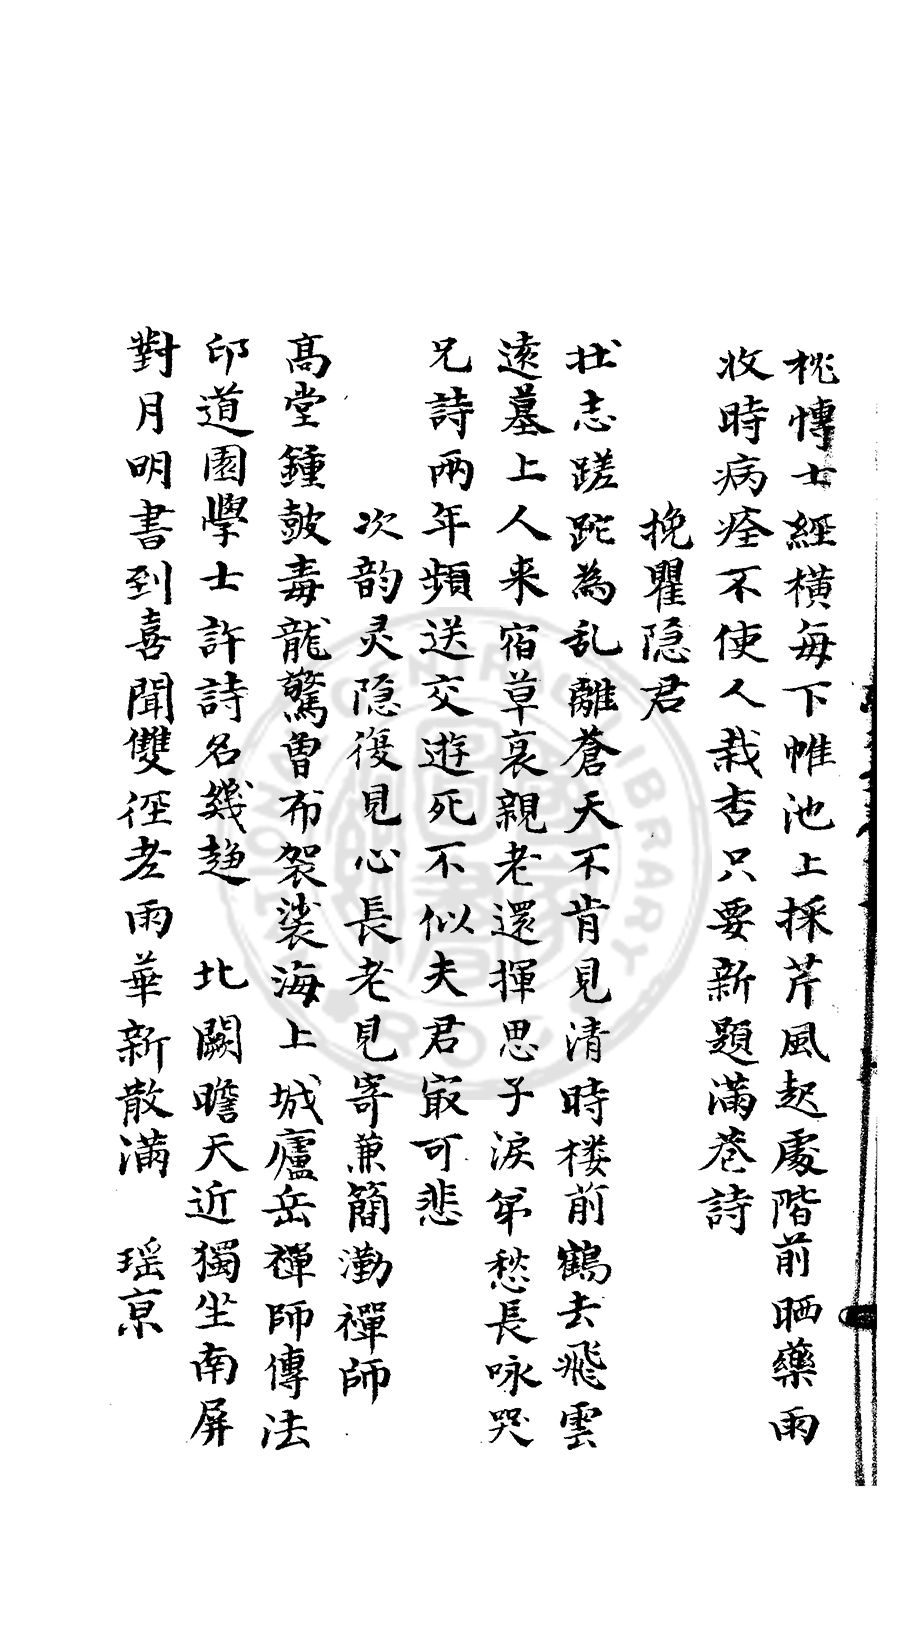 桃愽士經橫每下帷池上採芹風起處階前晒藥雨
收時病痊不使人栽杏只要新題滿巷詩
挽瞿隐君
壮志蹉跎為乱離蒼天不肯見清時楼前鶴去飛雲
遠墓上人来宿草哀親老還揮思子淚弟愁長咏哭
兄詩兩年頻送交遊死不似夫君冣可悲
次韵灵隐復見心長老見寄兼簡泐禪師
髙堂鍾皷毒龍驚曽布袈裟海上城廬岳禪師傳法
印道園學士許詩名幾趍 北闕瞻天近獨坐南屏
對月明書到喜聞雙徑老雨華新散滿 瑶京